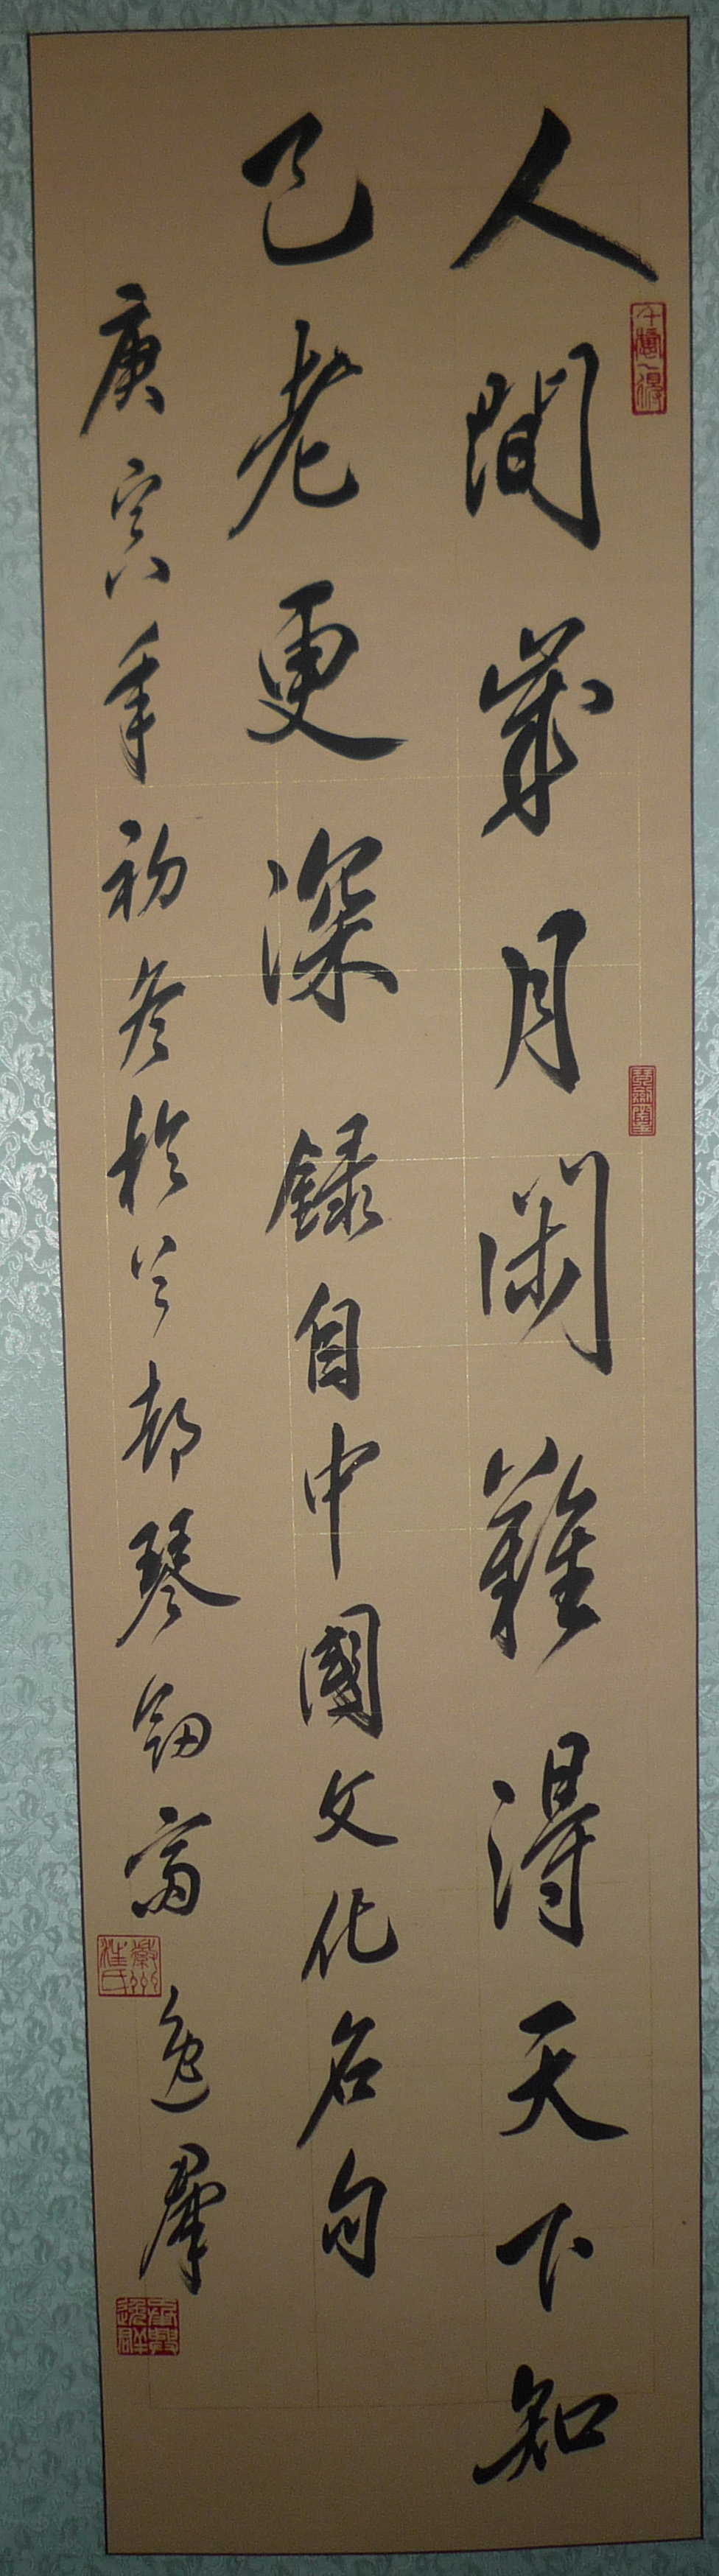 人間歲月閑難得天下知
己老更深錄自中國文化名句
庚寅年初冬於兰都琴劍齋
逸群